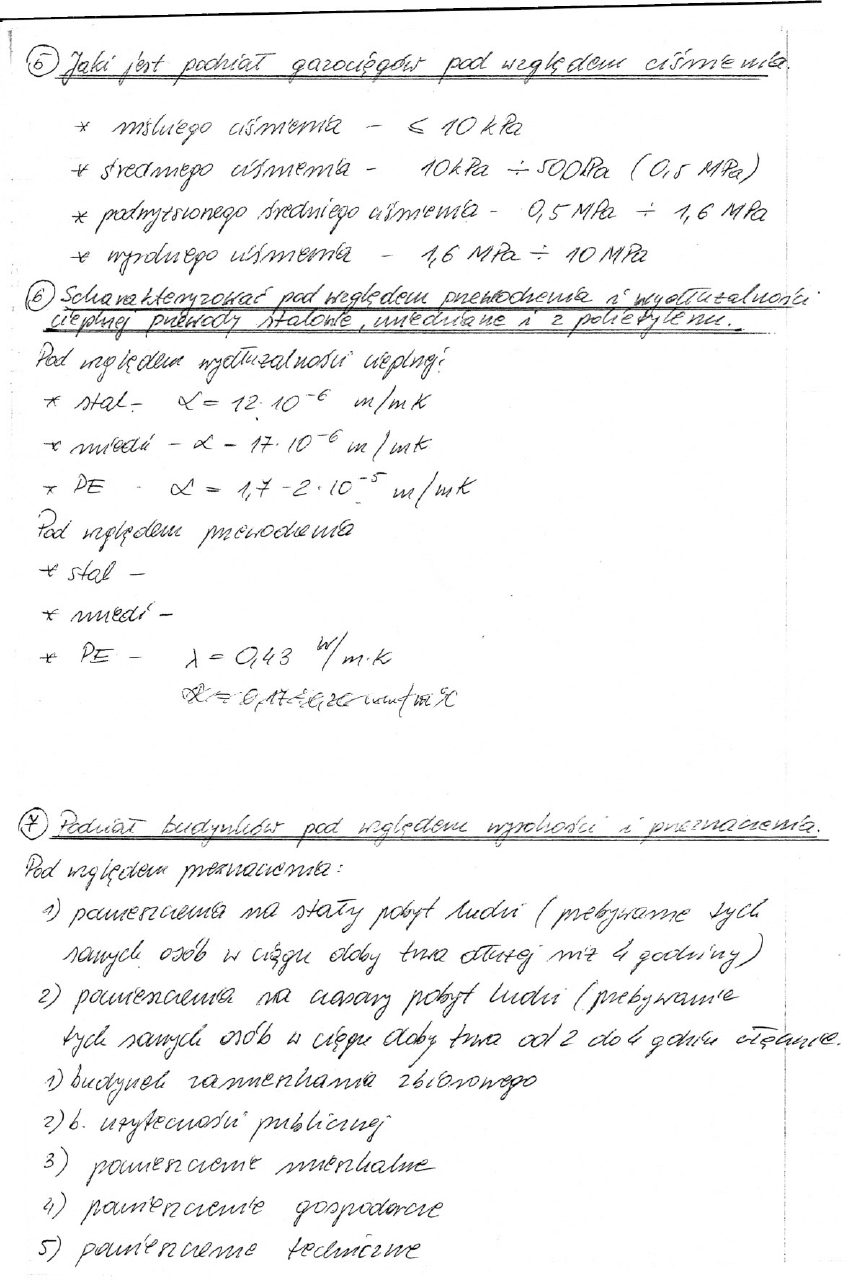 5 Jaki jest podział gazociągów pod względem ciśnienia.
* niskiego ciśnienia - ≤ 10 kPa
* średniego ciśnienia - 10 kPa ÷ 500 kPa (0,5 MPa)
* podwyższonego średniego ciśnienia - 0,5 MPa ÷ 1,6 MPa
* wysokiego ciśnienia - 1,6 MPa ÷ 10 MPa
6 Scharakteryzować pod względem przewodzenia i wydłużalności
cieplnej przewody stalowe, miedziane i z polietylenu.
Pod względem wydłużalności cieplnej:
* stal - α = 12·10⁻⁶ m/mK
* miedź - α - 17·10⁻⁶ m/mK
* PE - α = 1,7-2·10⁻⁵ m/mK
Pod względem przewodzenia
* stal -
* miedź -
* PE - λ = 0,43 W/m·K
α = 0,17÷0,20 mm/m°C
7 Podział budynków pod względem wysokości i przeznaczenia.
Pod względem przeznaczenia:
1) pomieszczenia na stały pobyt ludzi (przebywanie tych
samych osób w ciągu doby trwa dłużej niż 4 godziny)
2) pomieszczenia na czasowy pobyt ludzi (przebywanie
tych samych osób w ciągu doby trwa od 2 do 4 godzin włącznie.
1) budynek zamieszkania zbiorowego
2) b. użyteczności publicznej
3) pomieszczenie mieszkalne
4) pomieszczenie gospodarcze
5) pomieszczenie techniczne